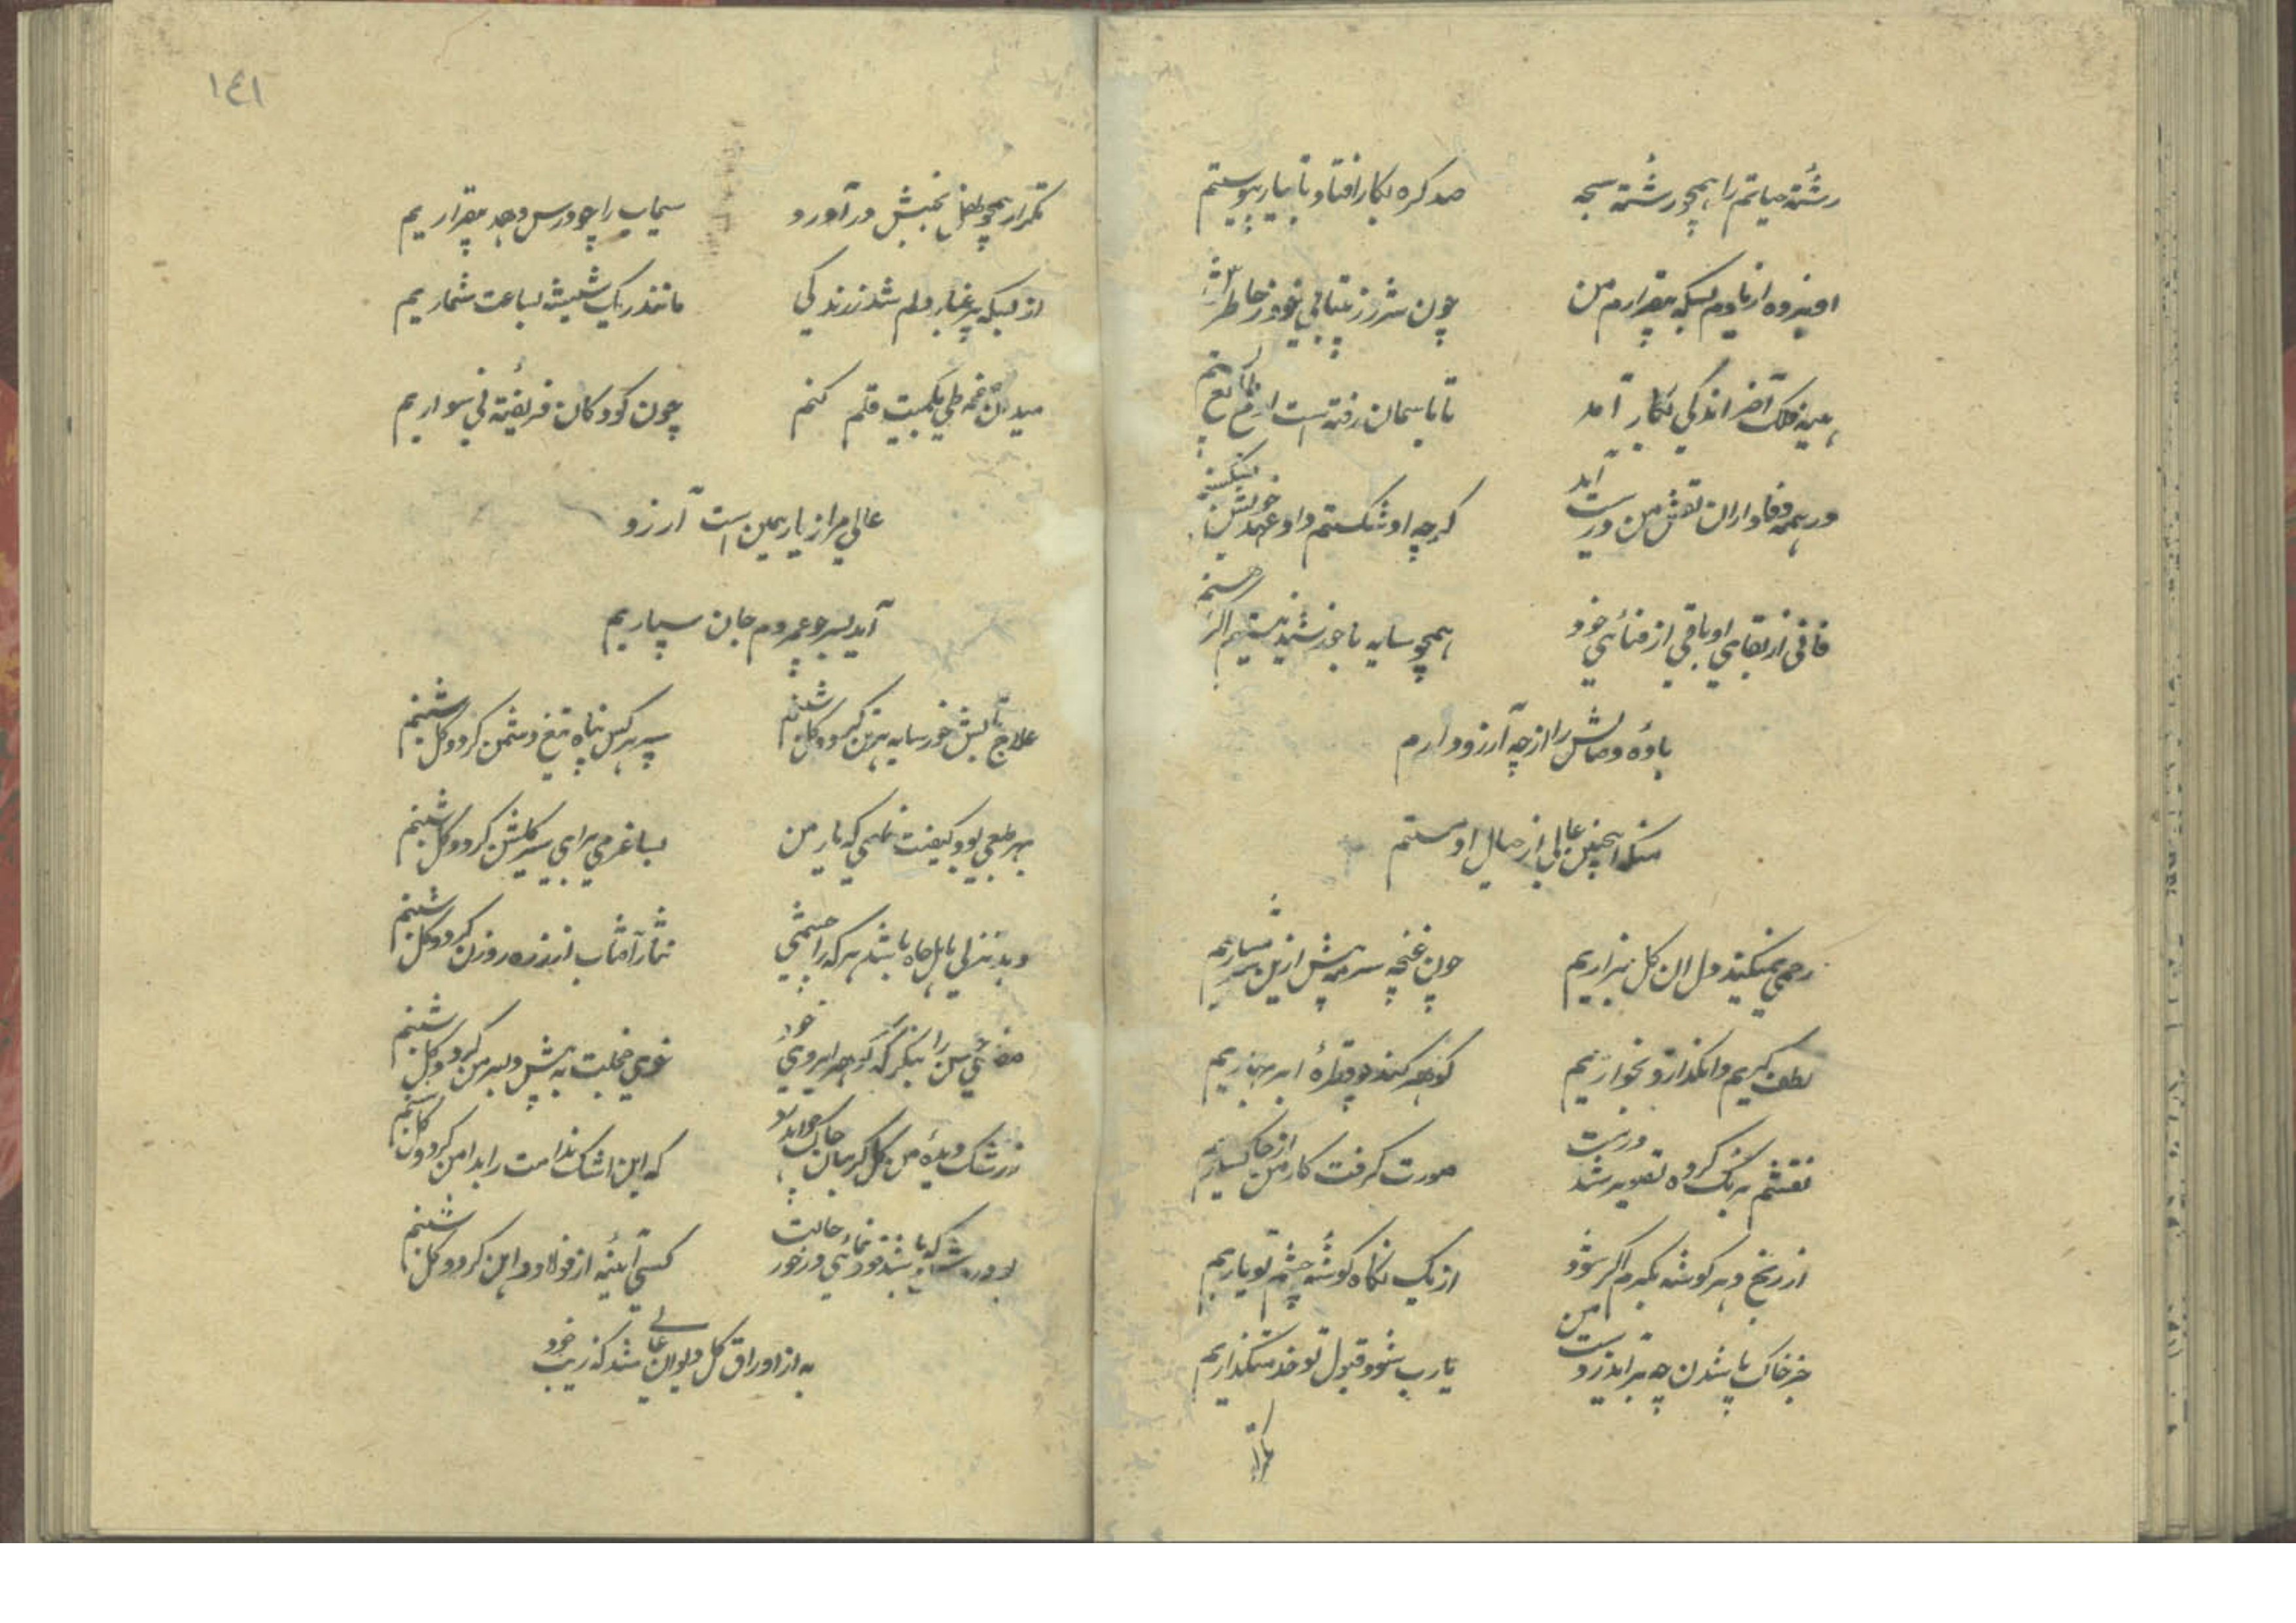 رشتهٔ حیاتم را همچو رشتهٔ سبحه
صد کره بکار افتاد تا بیار پیوستم
افزوده از یادم بسکه بیقرارم من
چون شرر ز بیتابی خود ز خاطرش
همینه فلک آخر اندکی بکار آمد
تا باسمان رفته است
در همه وفاداران نقش من درست آید
کرچه او شکستم داد عهد خویش نشکستم
فانی از بقای او باقی از فنای خود
همچو سایه با خورشید نیستم اکر هستم
بادهٔ وصالش را از چه آرزو دارم
منکه اینچنین عالی از خیال او مستم
رحمی نمیکند دل ان کل بزاریم
چون غنچه سر به پیش ازین شرمساریم
لطف کریم وانکذارد بخواریم
کوهر کند چو قطرهٔ ابر بهاریم
نقشم برنک کرده تصویر شد درست
صورت کرفت کار من از خاکساریم
از رنج دهر کوشه بکیرم اکر شود
از یک نکاه کوشهٔ چشم تو یاریم
جز خاک پا شدن چه برآید ز دست من
یارب شود قبول تو خدمتکذاریم
تکرار
تکرار همچو طفل بجنبش در آورد
سیماب را چو درس دهد بیقراریم
از بسکه پر غبار دلم شد ز زندکی
مانند ریک شیشه بساعت شماریم
میدان صفحه طی بکمیت قلم کنم
چون کودکان فریفتهٔ نی سواریم
عالی مرا ز یار همین است آرزو
آید بسر چو عمر و دم جان سپاریم
علاج تابش خور سایه بر من کرد و کل شبنم
سپر هر کس پناه تیغ دشمن کرد و کل شبنم
بهر طبعی بود کیفیت خاصی که یار من
بساغر می برای سیر کلشن کرد و کل شبنم
دهد تنزل باهل جاه باشد هر که را چشمی
نثار آفتاب از ذره روزن کرد و کل شبنم
را بنکر که کوهر ابروی خود
خوی خجلت به پیش دلبر من کرد و کل شبنم
ز رشک دیدهٔ من کل کریبان چاک خواهد شد
که این اشک ندامت را بدامن کرد و کل شبنم
خودنمائی در خور حالت
کسی آیینه از فولاد و آهن کرد و کل شبنم
به از اوراق کل دیوان عالی شد که زیب خود
١٤١